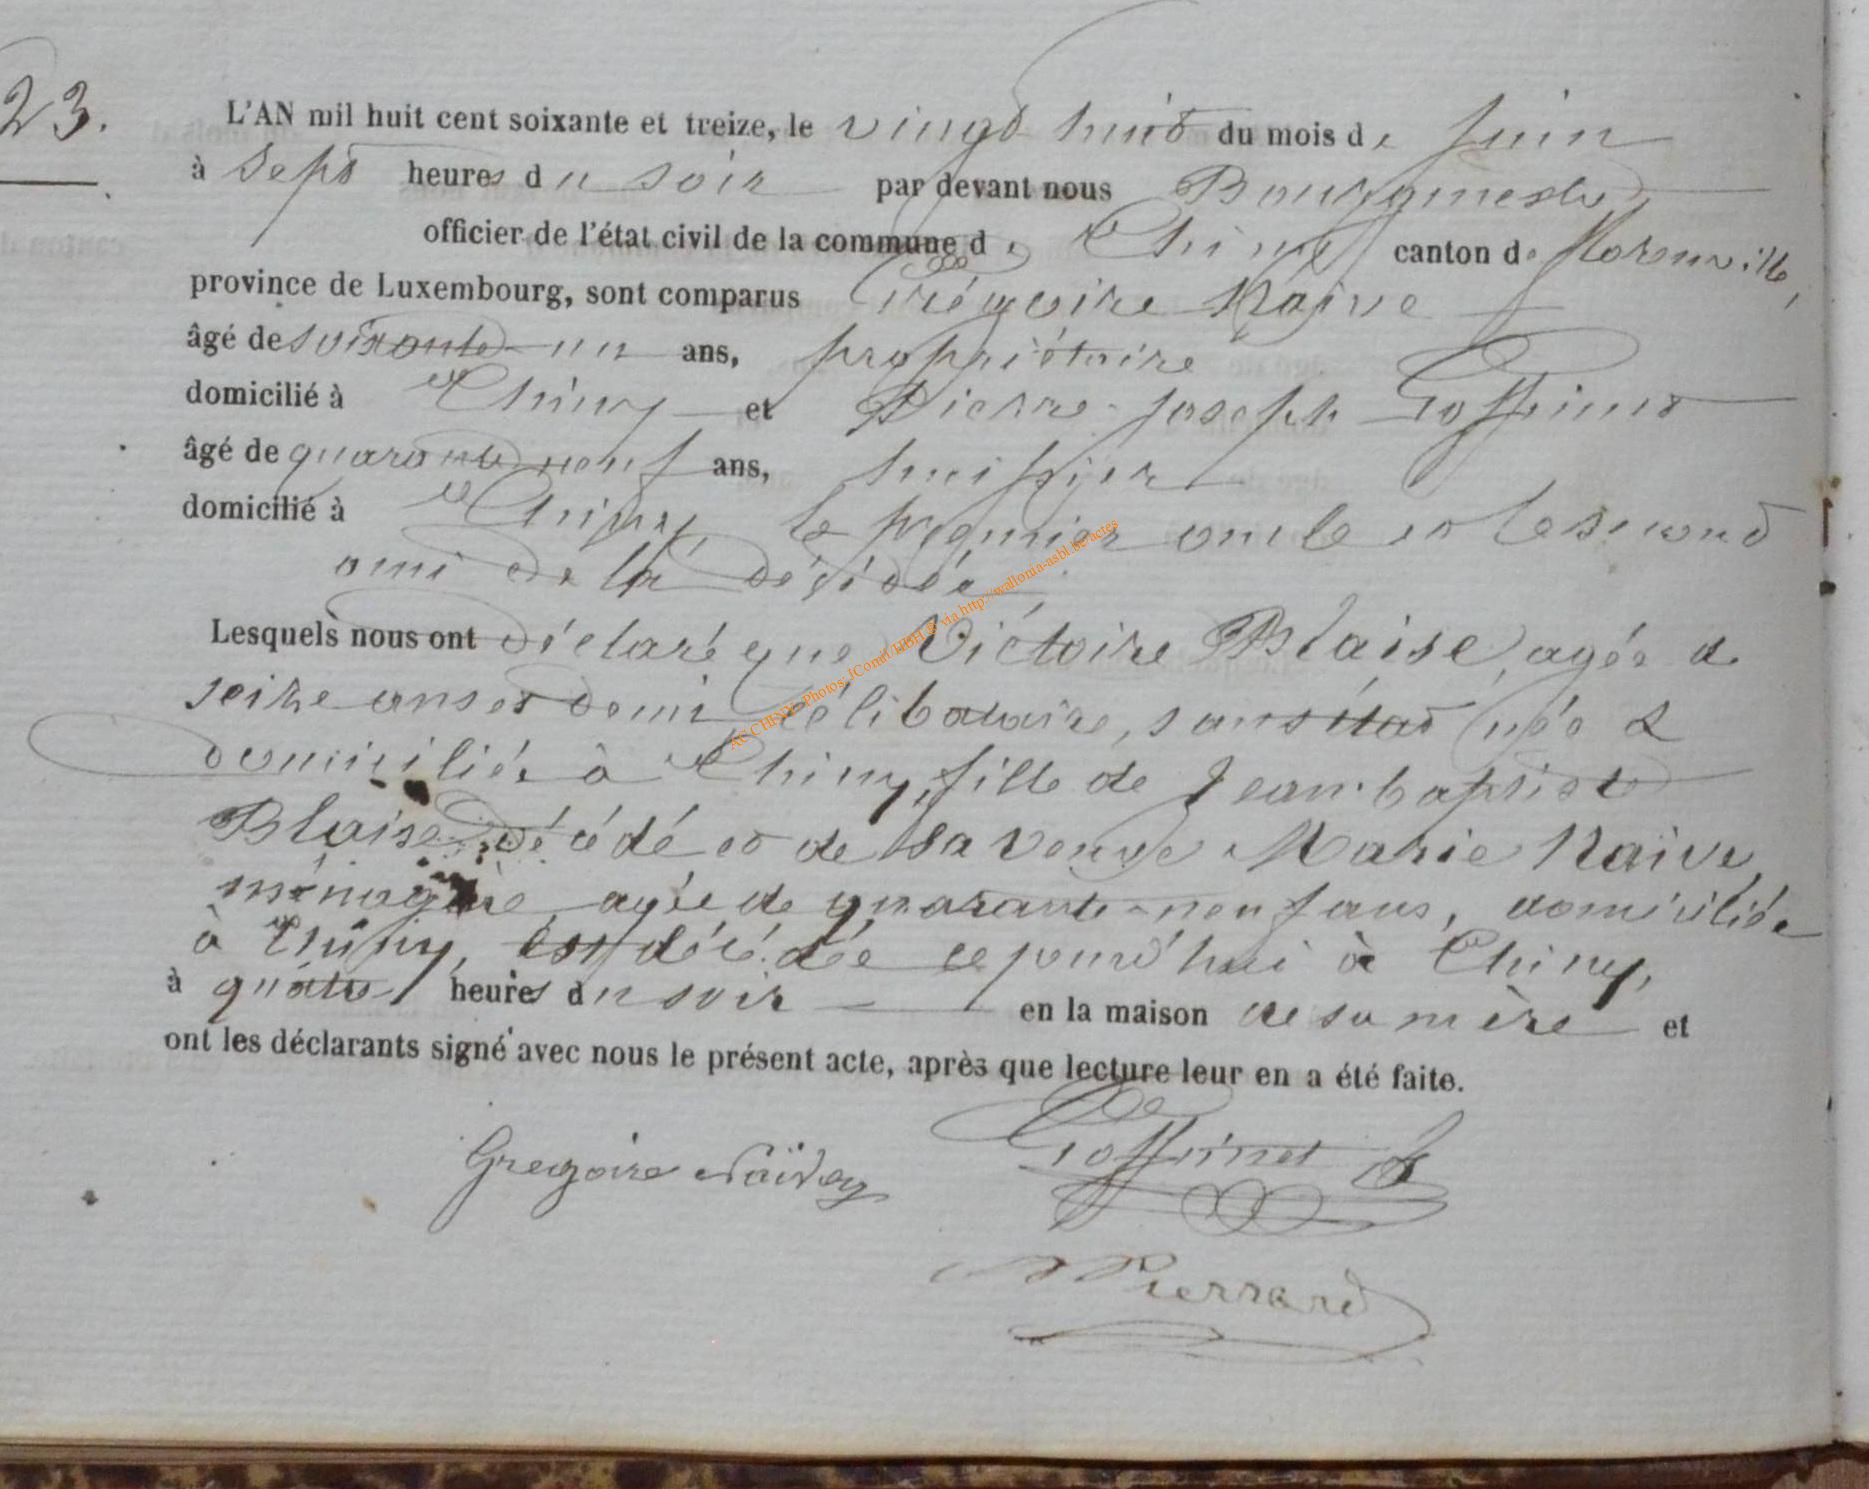 23.
L'AN mil huit cent soixante et treize, le vingt huit du mois de Juin
à sept heures du soir par devant nous Bourgmestre
officier de l'état civil de la commune de Chiny canton de Florenville,
province de Luxembourg, sont comparus Grégoire Naive
âgé de soixante-un ans, propriétaire
domicilié à Chiny et Pierre-Joseph Goffinet
âgé de quarante neuf ans, huissier
domicilié à Chiny, le premier oncle et le second
ami de la décédée,
Lesquels nous ont déclaré que Victoire Blaise, agée de
seize ans et demi célibataire, sans état née &
domiciliée à Chiny, fille de Jean-baptiste
Blaise décédé et de sa veuve Marie Naive,
ménagère, agée de quarante-neuf ans, domiciliée
à Chiny, est décédée cejourd'hui à Chiny,
à quatre heures du soir en la maison de sa mère et
ont les déclarants signé avec nous le présent acte, après que lecture leur en a été faite.
Gregoire Naïvey Goffinet
Pierrard
AC CHINY- Photos: JComif/HBH © via http://wallonia-asbl.be/actes